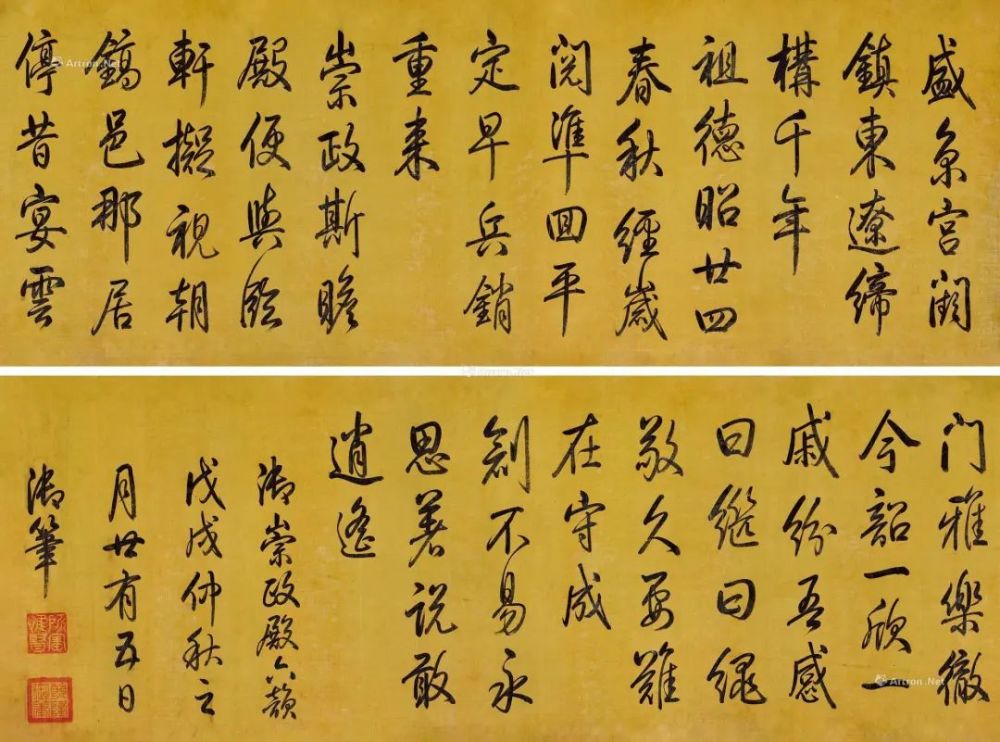 盛京宮闕
鎮東遼締
構千年
祖德昭廿四
春秋經歲
閱準回平
定早兵銷
重來
崇政斯瞻
殿便與臨
軒擬視朝
鎬邑那居
停昔宴雲
門雅樂徹
今韶一欣一
戚紛吾感
曰繼曰繩
敬久要難
在守成
創不易永
思著說敢
逍遙
御崇政殿六韻
戊戌仲秋之
月廿有五日
御筆
Artron.Net
Artron.Net